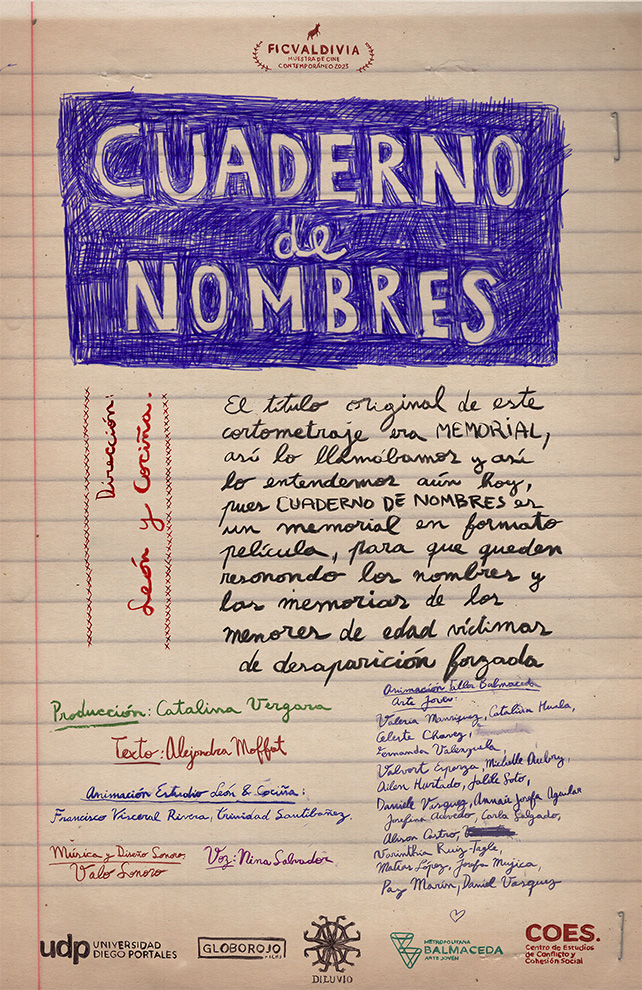 FICVALDIVIA
MUESTRA DE CINE
CONTEMPORÁNEO 2023
CUADERNO
de
NOMBRES
Dirección:
León y Cociña.
El título original de este
cortometraje era MEMORIAL,
así lo llamábamos y así
lo entendemos aún hoy,
pues CUADERNO DE NOMBRES es
un memorial en formato
película, para que queden
resonando los nombres y
las memorias de los
menores de edad víctimas
de desaparición forzada
Producción: Catalina Vergara
Texto: Alejandra Moffat
Animación Estudio León & Cociña:
Francisco Visceral Rivera, Trinidad Santibañez.
Música y Diseño Sonoro
Valo Sonoro
Voz: Nina Salvador
Animación taller Balmaceda
Arte Joven:
Valeria Manriquez, Catalina Huala,
Celeste Chavez,
Fernanda Valenzuela
Esparza, Michelle Aubrey,
Ailen Hurtado, Jalile Soto,
Daniele Vasquez, Annais Josefa Aguilar
Josefina Acevedo, Carla Salgado,
Alison Castro,
Ruiz-Tagle,
Matias López, Josefa Mujica,
Paz Marin, Daniel Vasquez
udp UNIVERSIDAD
DIEGO PORTALES
GLOBOROJO
FILMS
DILUVIO
METROPOLITANA
BALMACEDA
ARTE JOVEN
COES.
Centro de Estudios
de Conflicto y
Cohesión Social